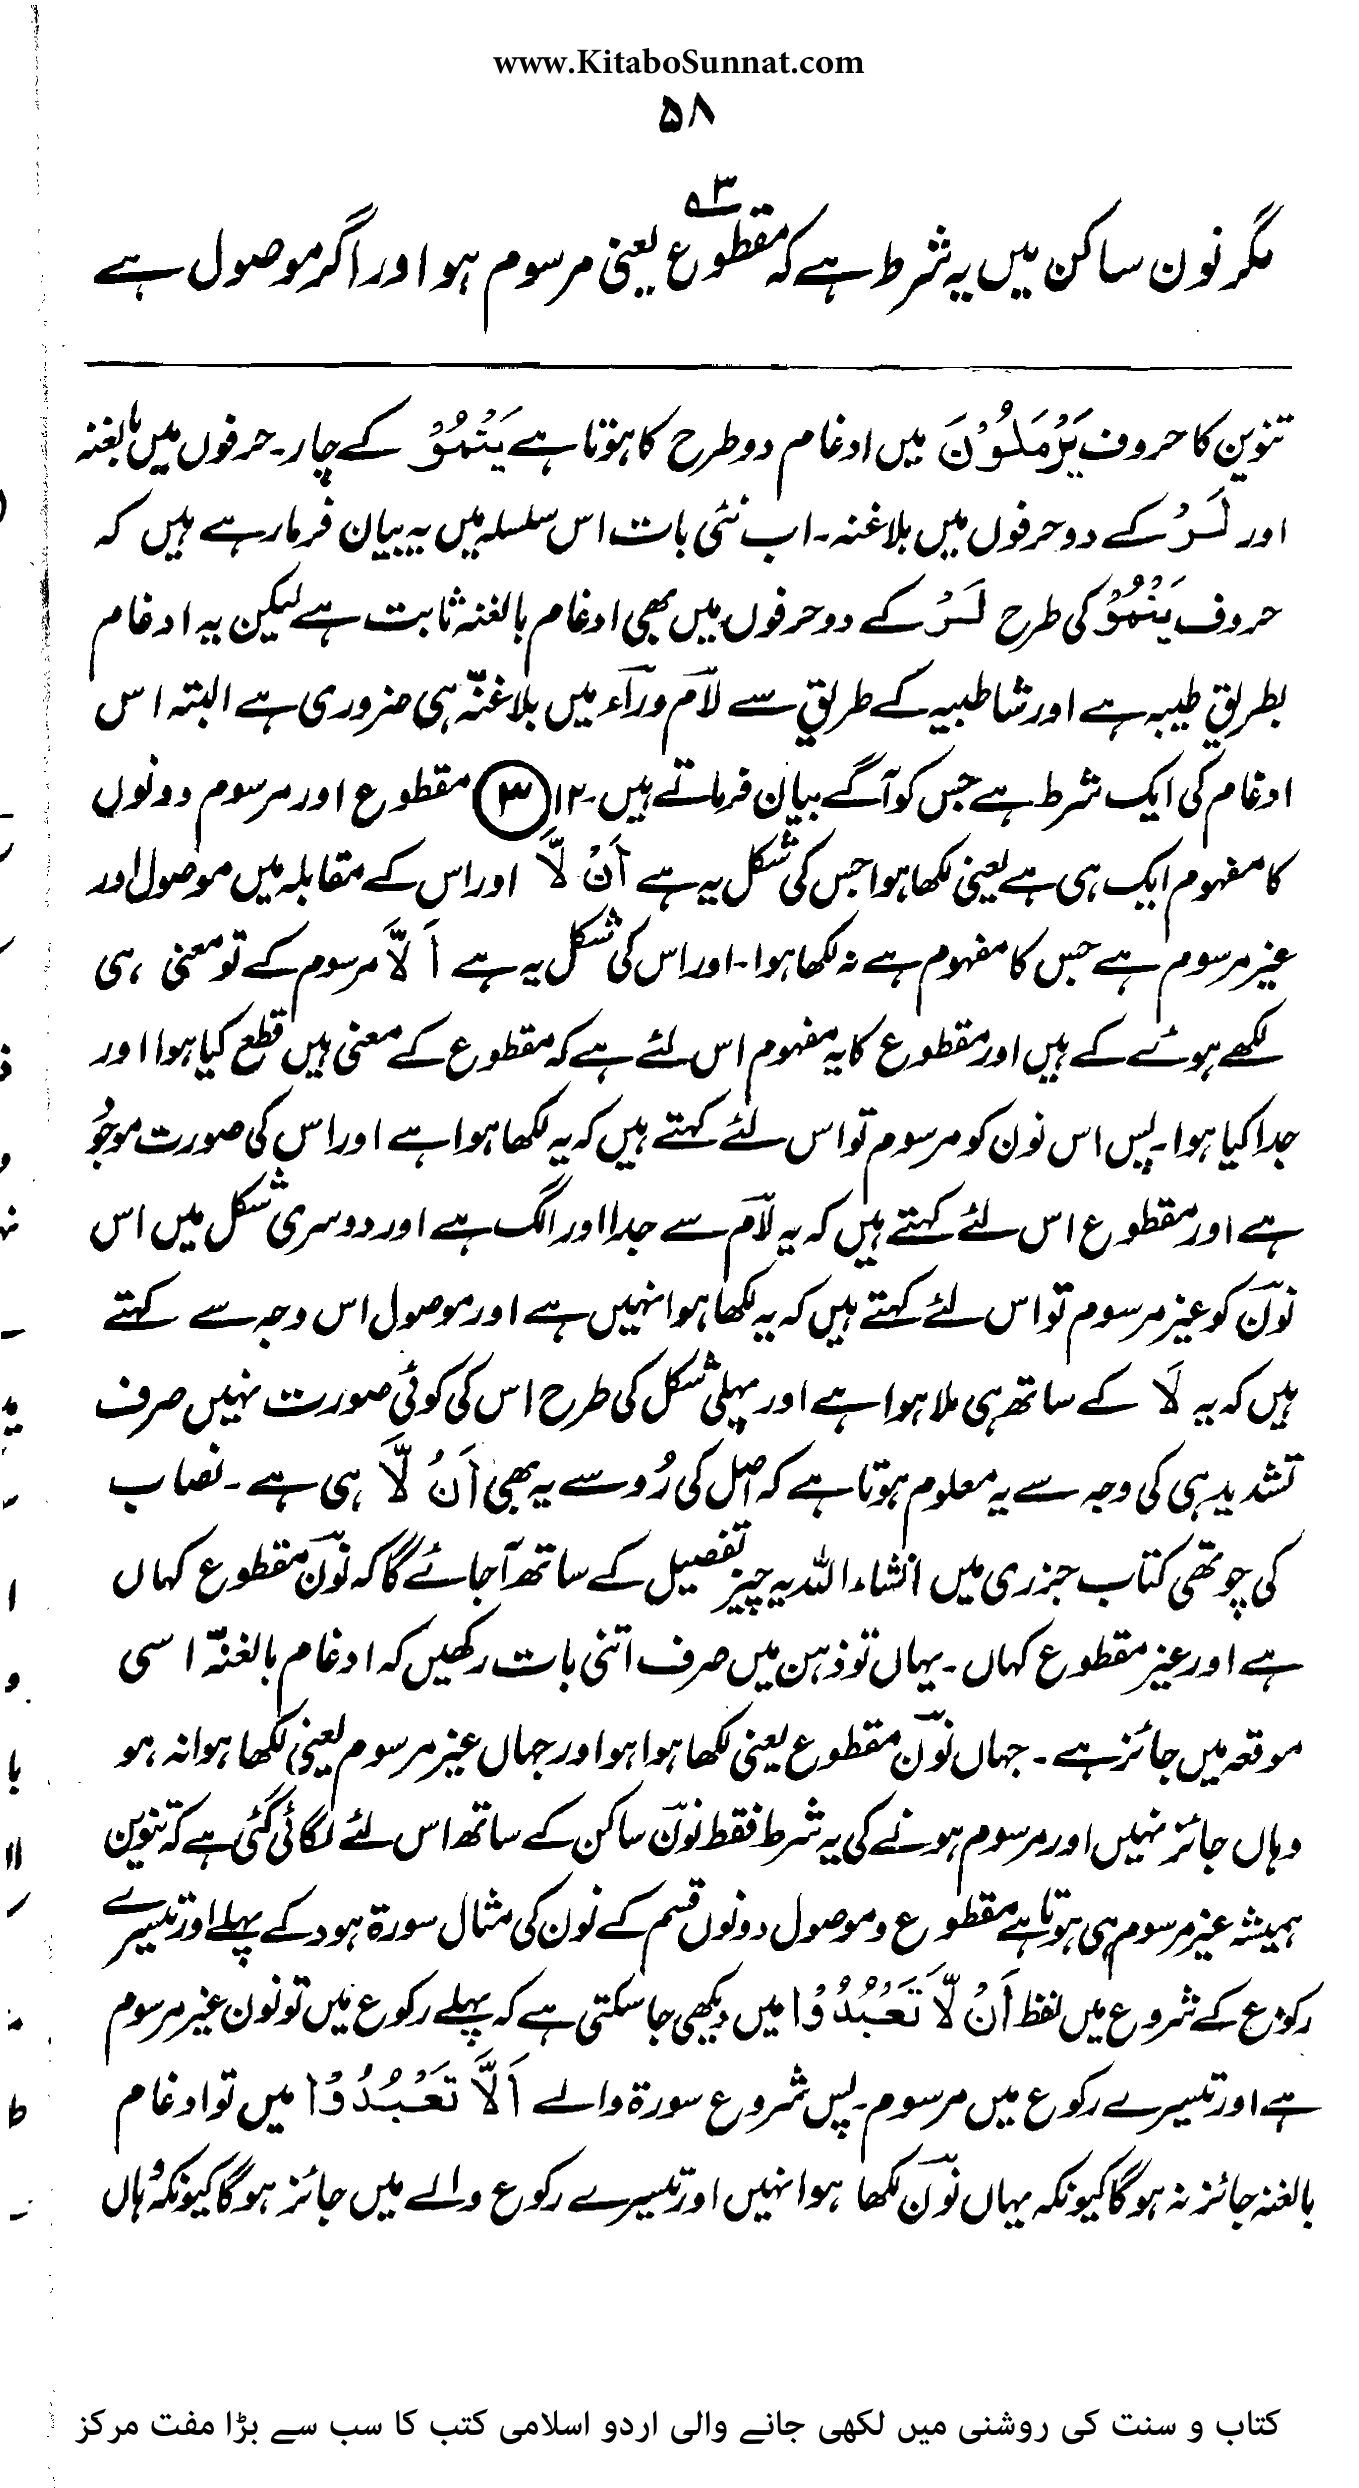 www.KitaboSunnat.com
۵۸
مگر نون ساکن میں یہ شرط ہے کہ مقطوع۳ یعنی مرسوم ہو اور اگر موصول ہے
تنوین کا حروف یَرْمَلُوْنَ میں ادغام دو طرح کا ہوتا ہے یَنْمُوْ کے چار۔ حرفوں میں بالغنہ
اور لَرْ کے دو حرفوں میں بلاغنہ۔ اب نئی بات اس سلسلہ میں یہ بیان فرما رہے ہیں کہ
حروف یَنْمُوْ کی طرح لَرْ کے دو حرفوں میں بھی ادغام بالغنہ ثابت ہے لیکن یہ ادغام
بطریقِ طیبہ ہے اور شاطبیہ کے طریق سے لآم ورآء میں بلاغنّہ ہی ضروری ہے البتہ اس
ادغام کی ایک شرط ہے جس کو آگے بیان فرماتے ہیں۔ ۱۲ (۳) مقطوع اور مرسوم دونوں
کا مفہوم ایک ہی ہے یعنی لکھا ہوا جس کی شکل یہ ہے اَنْ لَّا اور اس کے مقابلہ میں موصول اور
غیر مرسوم ہے جس کا مفہوم ہے نہ لکھا ہوا۔ اور اس کی شکل یہ ہے اَلَّا مرسوم کے تو معنی ہی
لکھے ہوئے کے ہیں اور مقطوع کا یہ مفہوم اس لئے ہے کہ مقطوع کے معنی ہیں قطع کیا ہوا اور
جدا کیا ہوا۔ پس اس نون کو مرسوم تو اس لئے کہتے ہیں کہ یہ لکھا ہوا ہے اور اس کی صورت موجود
ہے اور مقطوع اس لئے کہتے ہیں کہ یہ لآم سے جدا اور الگ ہے اور دوسری شکل میں اس
نوںٓ کو غیر مرسوم تو اس لئے کہتے ہیں کہ یہ لکھا ہوا نہیں ہے اور موصول اس وجہ سے کہتے
ہیں کہ یہ لَا کے ساتھ ہی ملا ہوا ہے اور پہلی شکل کی طرح اس کی کوئی صورت نہیں صرف
تشدید ہی کی وجہ سے یہ معلوم ہوتا ہے کہ اصل کی رُو سے یہ بھی اَنْ لَّا ہی ہے۔ نصاب
کی چوتھی کتاب جزری میں انشاء اللہ یہ چیز تفصیل کے ساتھ آجائے گا کہ نوںٓ مقطوع کہاں
ہے اور غیر مقطوع کہاں۔ یہاں تو ذہن میں صرف اتنی بات رکھیں کہ ادغام بالغنّہ اسی
موقعہ میں جائز ہے۔ جہاں نوںٓ مقطوع یعنی لکھا ہوا ہو اور جہاں غیر مرسوم یعنی لکھا ہوا نہ ہو
وہاں جائز نہیں اور مرسوم ہونے کی یہ شرط فقط نوںٓ ساکن کے ساتھ اس لئے لگائی گئی ہے کہ تنوین
ہمیشہ غیر مرسوم ہی ہوتا ہے مقطوع و موصول دونوں قسم کے نون کی مثال سورۃ ہود کے پہلے اور تیسرے
رکوع کے شروع میں لفظ اَنْ لَّا تَعْبُدُوْا میں دیکھی جاسکتی ہے کہ پہلے رکوع میں تو نون غیر مرسوم
ہے اور تیسرے رکوع میں مرسوم۔ پس شروع سورۃ والے اَلَّا تَعْبُدُوْا میں تو ادغام
بالغنہ جائز نہ ہوگا کیونکہ یہاں نوںٓ لکھا ہوا نہیں اور تیسرے رکوع والے میں جائز ہوگا کیونکہ وہاں
کتاب و سنت کی روشنی میں لکھی جانے والی اردو اسلامی کتب کا سب سے بڑا مفت مرکز